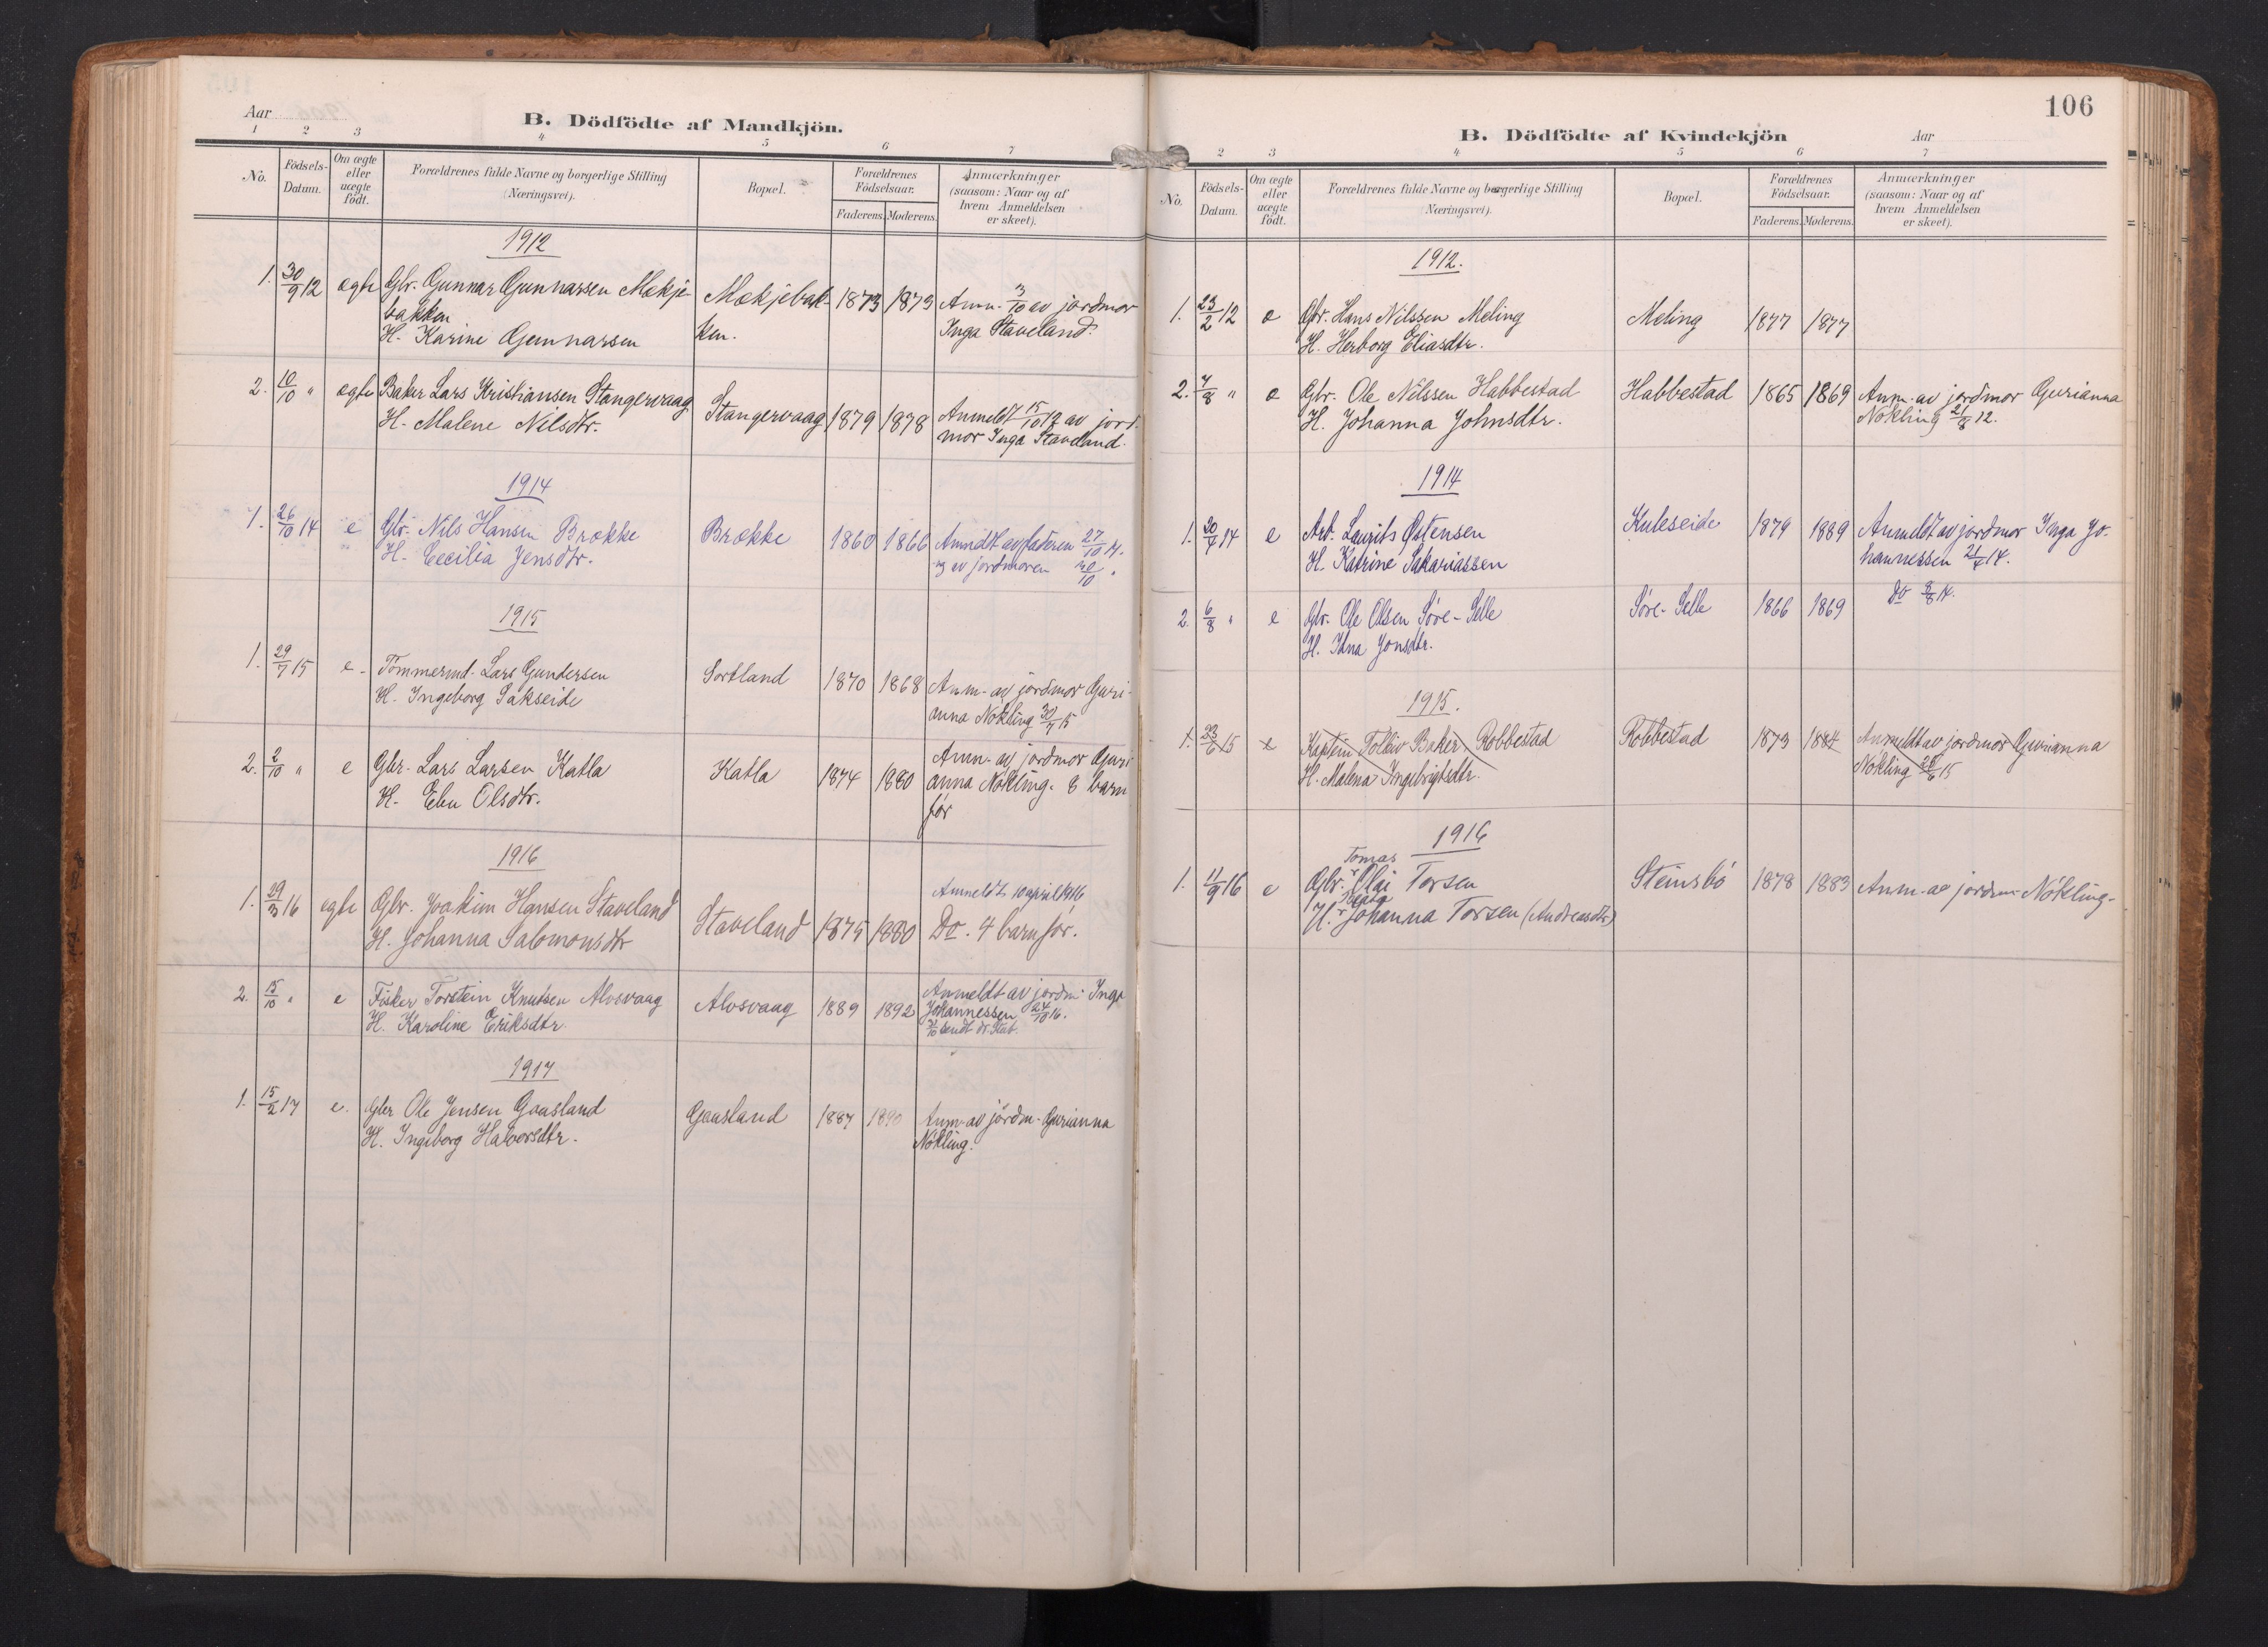 Aar
B. Dödfödte af Mandkjön.
1 2 3 4 5 6 7
No.
Födsels-
Datum.
Om ægte
eller
uægte
født.
Forældrenes fulde Navne og borgerlige Stilling
(Næringsvei).
Bopæl.
Forældrenes
Födselsaar.
Faderens. Moderens.
Anmærkninger
(saasom: Naar og af
hvem Anmeldelsen
er skeet).
1912
1. 30/9 12 ægte Gbr. Gunnar Gunnarsen Mækje- Mækjebak- 1873 1873 Anm. 3/10 av jordmor
bakken
H. Karine Gunnarsen ken. Inga Staveland.
2. 10/10 " ægte Baker Lars Kristiansen Stangervaag Stangervaag 1879 1878 Anmeldt 15/10 12 av jord-
H. Malene Nilsdtr. mor Inga Staveland.
1914
1. 26/10 14 e Gbr. Nils Hansen Brække Brække 1860 1866 Anmeldt av faderen 27/10 14.
H. Cecilia Jensdtr. og av jordmoren 30/10 "
1915
1. 29/7 15 e - Tømmermd. Lars Gundersen Sortland 1870 1868 Anm. av jordmor Guri-
H. Ingeborg Sakseide anna Nøkling 30/7 15
2. 2/10 " e Gbr. Lars Larsen Katla Katla 1874 1880 Anm. av jordmor Guri-
H. Elen Olsdtr. anna Nøkling. 8 barn
før
1916
Anmeldt 10 april 1916
1. 29/3 16 ægte Gbr. Joakim Hansen Staveland Staveland 1875 1880 Do. 4 barn før.
H. Johanna Salomonsdtr
2. 15/10 " e Fisker Torstein Knutsen Alvsvaag Alvsvaag 1889 1892 Anmeldt av jordm. Inga
H. Karoline Eriksdtr. Johannessen 24/10 16.
sendt dr. Stub.
1917
1. 15/2 17 e. Gbr Ole Jensen Gaasland Gaasland 1887 1890 Anm. av jordm. Gurianna
H. Ingeborg Halvorsdtr. Nøkling.
106
B. Dödfödte af Kvindekjön
Aar
2 3 4 5 6 7
No.
Födsels-
Datum.
Om ægte
eller
uægte
födt.
Forældrenes fulde Navne og borgerlige Stilling
Næringsvei).
Bopæl.
Forældrenes
Födselsaar.
Faderens. Moderens.
Anmærkninger
(saasom: Naar og af
hvem Anmeldelsen
er skeet).
1912.
1. 23/2 12 e Gbr. Hans Nilssen Meling Meling 1877 1877
H. Herborg Eliasdtr.
2. 7/8 " e Gbr. Ole Nilssen Habbestad Habbestad 1865 1869 Anm. av jordmor Gurianna
H. Johanna Johnsdtr. Nøkling 21/8 12.
1914
1. 20/4 14 e Arb. Laurits Østensen Kuleseide 1879 1889 Anmeldt av jordmor Inga Jo-
H. Katrine Sakariassen hannessen 21/4 14.
2. 6/8 " e Gbr. Ole Olsen Søre-Selle Søre-Selle 1866 1869 Do 8/8 14.
H. Jona Jonsdtr.
1915.
1. 23/6 15 e Kaptein Tolleiv Baker, Robbestad Robbestad 1873 1884 Anmeldt av jordmor Gurianna
H. Malena Ingebrigtsdtr. Nøkling 28/6 15
1916
Tomas
1. 11/9 16 e Gbr. Olai Torsen Steinsbø 1878 1883 Anm. av jordm. Nøkling.
H. Johanna Torsen (Andreasdtr)